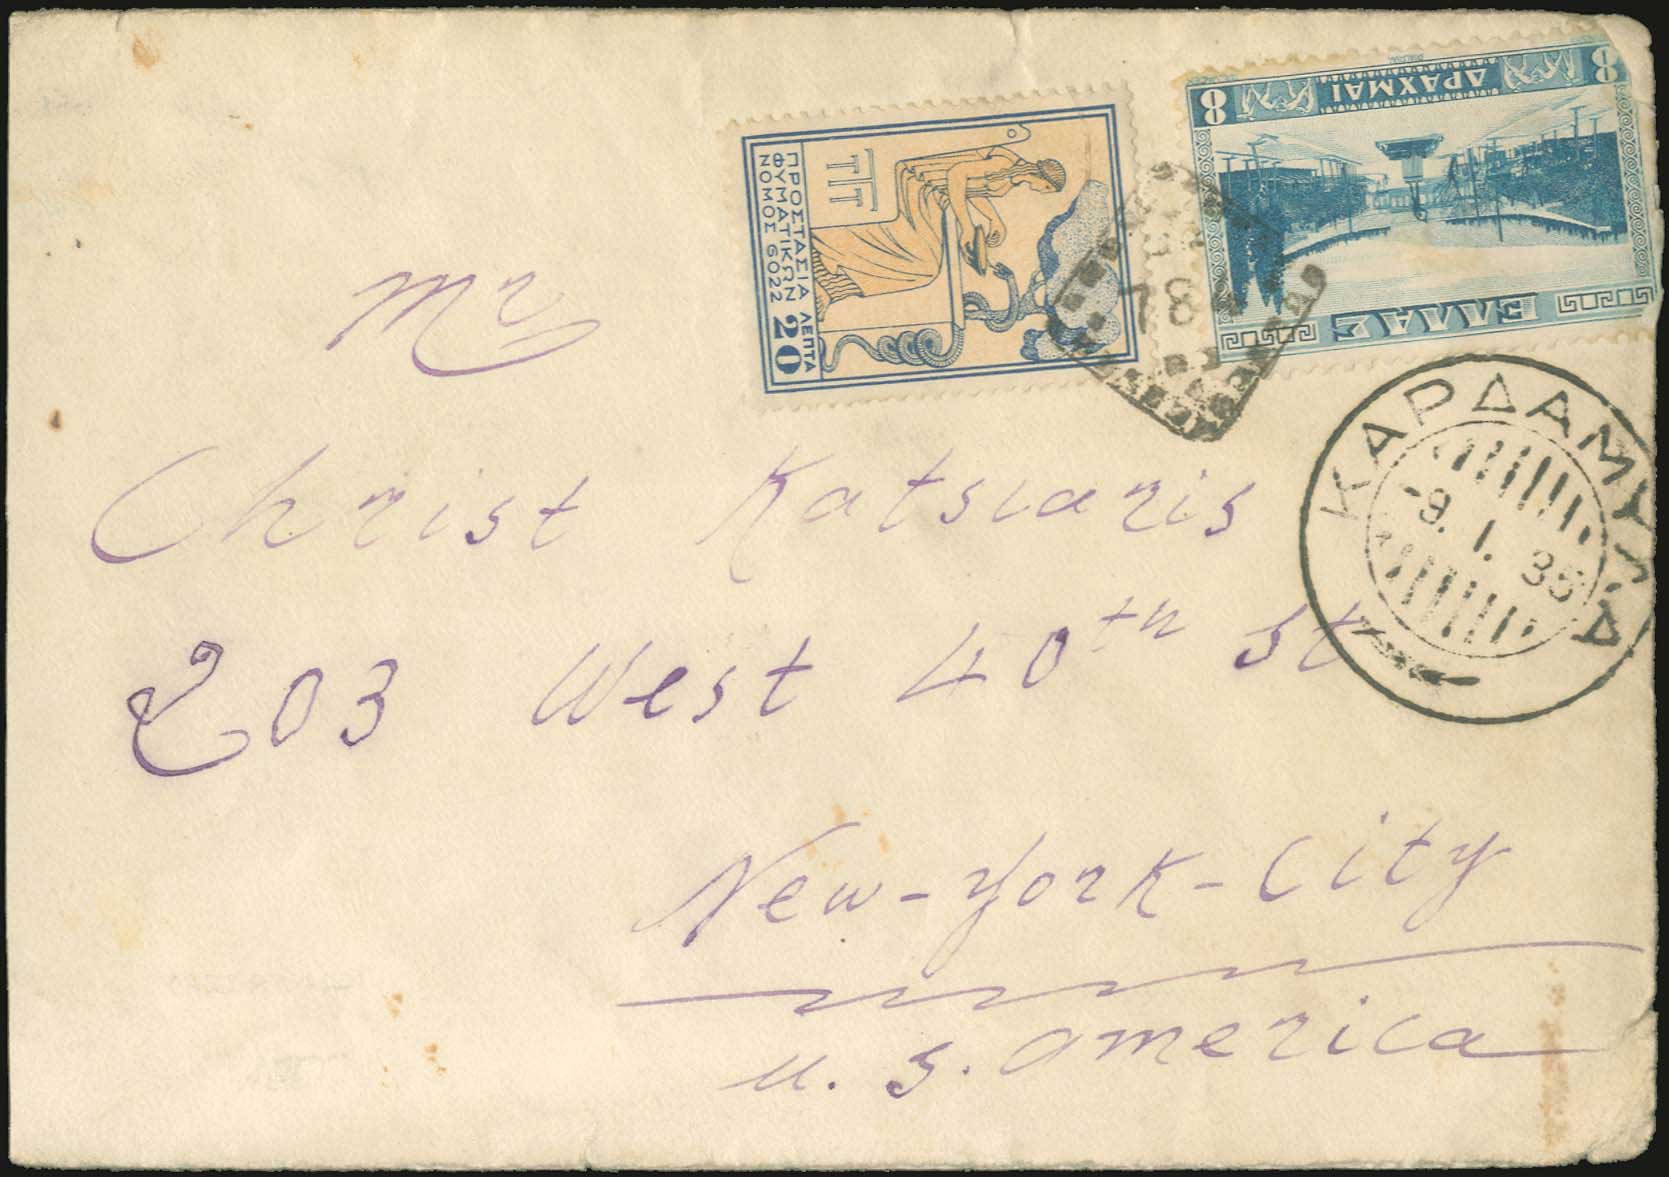 8 ΔΡΑΧΜΑΙ 8
ΕΛΛΑΣ
ΤΤ
ΠΡΟΣΤΑΣΙΑ
ΦΥΜΑΤΙΚΩΝ
ΝΟΜΟΣ 6022
ΛΕΠΤΑ
20
78
ΚΑΡΔΑΜΥΛΑ
-9. I. 35
Mr
Christ Katsiaris
203 West 40th st
New-York-City
U. S. america